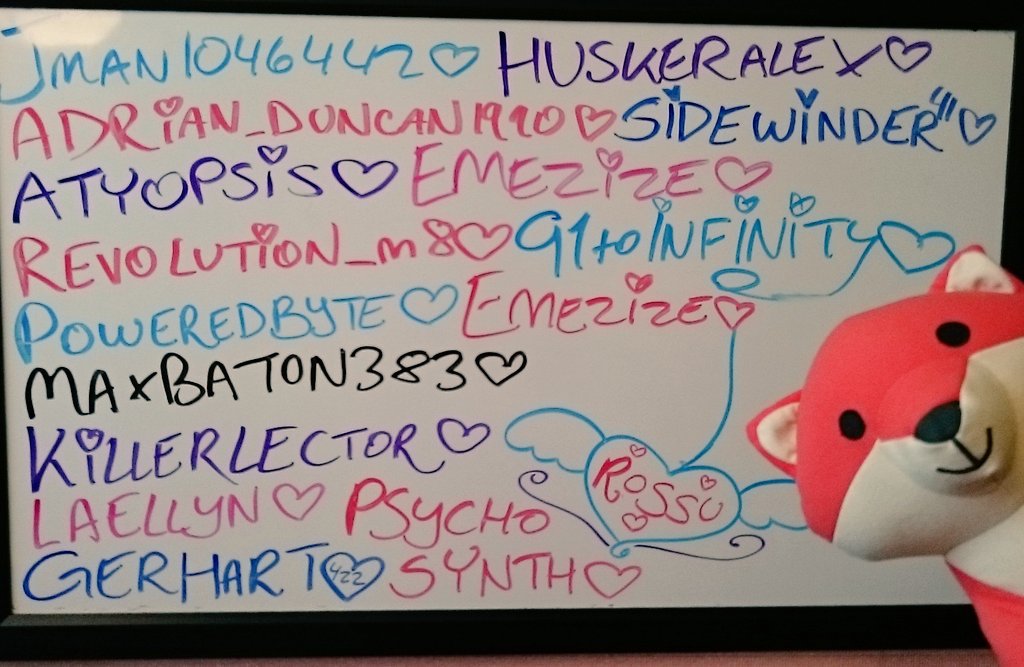 JMAN1046442♡ HUSKERALEX♡
ADRiAN_DUNCAN1990♡ SiDEWiNDER"♡
ATYOPSiS♡ EMEZiZE♡
REVOLUTiON_m8♡ 91toiNFiNiTy♡
POWEREDBYTE♡ EMEZiZE♡
MAxBATON383♡
KiLLERLECTOR♡
LAELLYN♡ PSYCHO
GERHART422 SYNTH♡
ROSSi